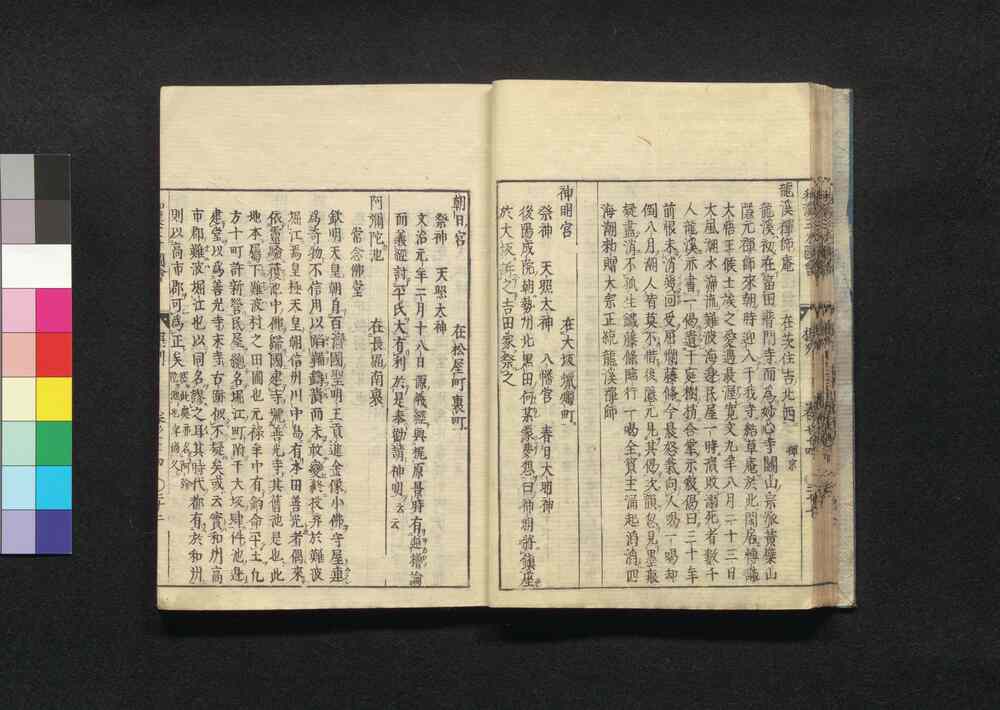 龍溪禪師庵　在茨住吉北西　禪宗
龍溪初在富田普門寺而爲妙心寺關山宗派黃檗山
隱元禪師來朝時迎入于我寺結草庵於此閑居博識
大悟王侯士埃之愛遇最渥寬文九年八月二十三日
大風潮水滔流難波海邊民屋一時頹敗溺死者數千
人龍溪示書一偈遺于庭樹枋合掌示寂偈曰三十年
前恨未消幾回受屈爛藤條今晨怒氣向人喝一喝却
倒八月潮人皆莫不惜後隱元見其偈次韻忽見墨痕
疑盡消不孤生鐵藤條臨行一喝全賓主涌起滔滔四
海潮勅贈大宗正統龍溪禪師
神明宮　在大坂蠟燭町
祭神　天照太神　八幡宮　春日大明神
後陽成院朝勢州北黑田何某蒙夢想曰神明將鎮座
於大坂濱之吉田家祭之
朝日宮　在松屋町裏町
祭神　天照太神
文治元年二月十八日源義經與梶原景時有逆櫓論
而義經討平氏大有利於是奉勸請神明云云
阿彌陀池　在長堀南裏
常念佛堂
欽明天皇朝自百濟國聖明王貢進金像小佛守屋連
爲奇物不信用以蹈鞴鑄潰而未敢變終夜弃於難波
堀江焉皇極天皇朝信州川中島有本田善光者偶來
依靈驗獲池中佛歸國建寺號善光寺其舊池是也此
地本屬下難波村之田圃也元祿年中有鈞命平土化
方十町許新營民屋總名堀江町附于大坂肆件池邊
建堂以爲善光寺末寺古面俶不疑矣或云實和州高
市郡難波堀江也以同名謬之耳其時代都有於和州
則以高市郡可爲正矣